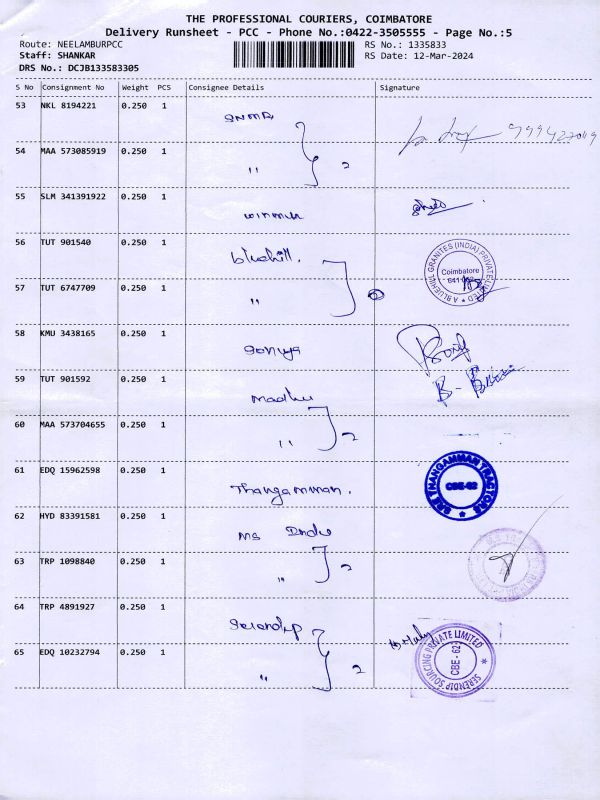 THE PROFESSIONAL COURIERS, COIMBATORE
Delivery Runsheet - PCC - Phone No.:0422-3505555 - Page No.:5
Route: NEELAMBURPCC RS No.: 1335833
Staff: SHANKAR RS Date: 12-Mar-2024
DRS No.: DCJB133583305
S No Consignment No Weight PCS Consignee Details Signature
53 NKL 8194221 0.250 1
54 MAA 573085919 0.250 1 " 2
55 SLM 341391922 0.250 1
56 TUT 901540 0.250 1 bluehill.
A BLUEHILL GRANITES (INDIA) PRIVATE LIMITED
Coimbatore
57 TUT 6747709 0.250 1 "
58 KMU 3438165 0.250 1 Soniya
59 TUT 901592 0.250 1 Madhu
60 MAA 573704655 0.250 1 " 2
61 EDQ 15962598 0.250 1 Thangamman.
SREE THANGAMMAN TRACTORS
CBE-62
62 HYD 83391581 0.250 1 MS
63 TRP 1098840 0.250 1 " 2
64 TRP 4891927 0.250 1 Serendip
65 EDQ 10232794 0.250 1 " 2
SERENDIP SOURCING PRIVATE LIMITED
CBE - 62